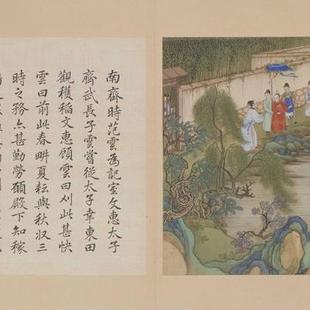 南齊時范雲為記室文惠太子
齊武長子雲嘗從太子幸東田
觀穫稻文惠顧雲曰刈此甚快
雲曰前此春畊夏耘與秋収三
時之務亦甚勤勞願殿下知稼